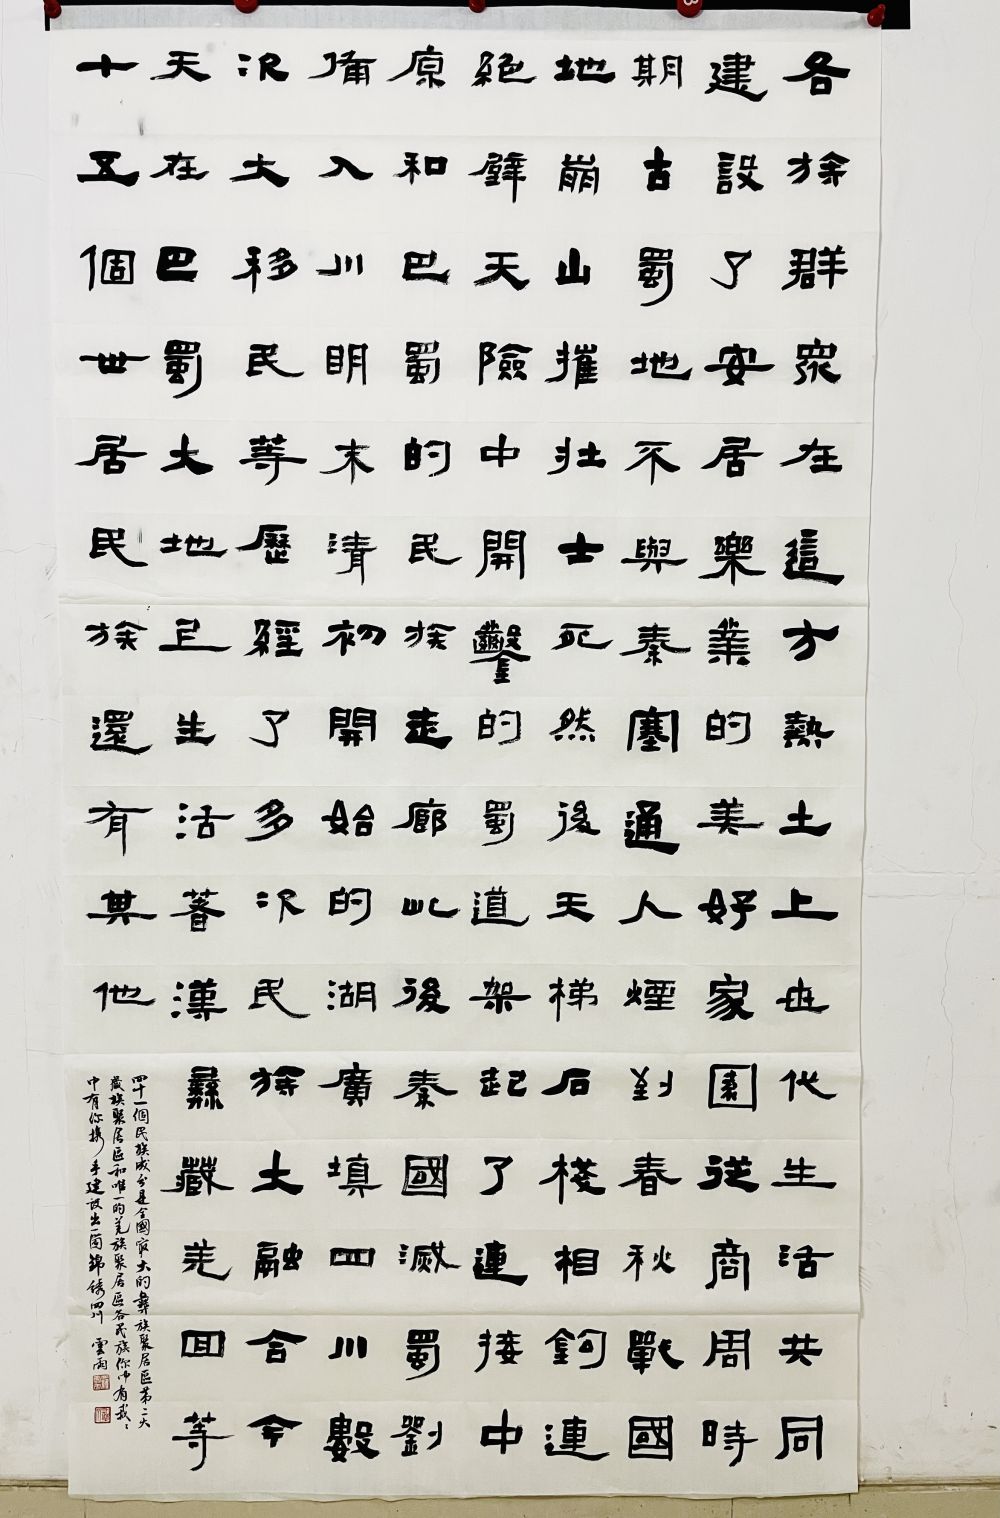 各族群眾在這方熱土上世代生活共同
建設了安居樂業的美好家園從商周時
期古蜀地不與秦塞通人煙到春秋戰國
地崩山摧壯士死然後天梯石棧相鉤連
絕壁天險中開鑿的蜀道架起了連接中
原和巴蜀的民族走廊此後秦國滅蜀劉
備入川明末清初開始的湖廣填四川數
次大移民等歷經了多次民族大融合今
天在巴蜀大地上生活著漢彝藏羌回等
十五個世居民族還有其他
四十一個民族成分是全國最大的彝族聚居區第二大
藏族聚居區和唯一的羌族聚居區各民族你中有我々
中有你攜手建設出一個錦綉四川 雲雨